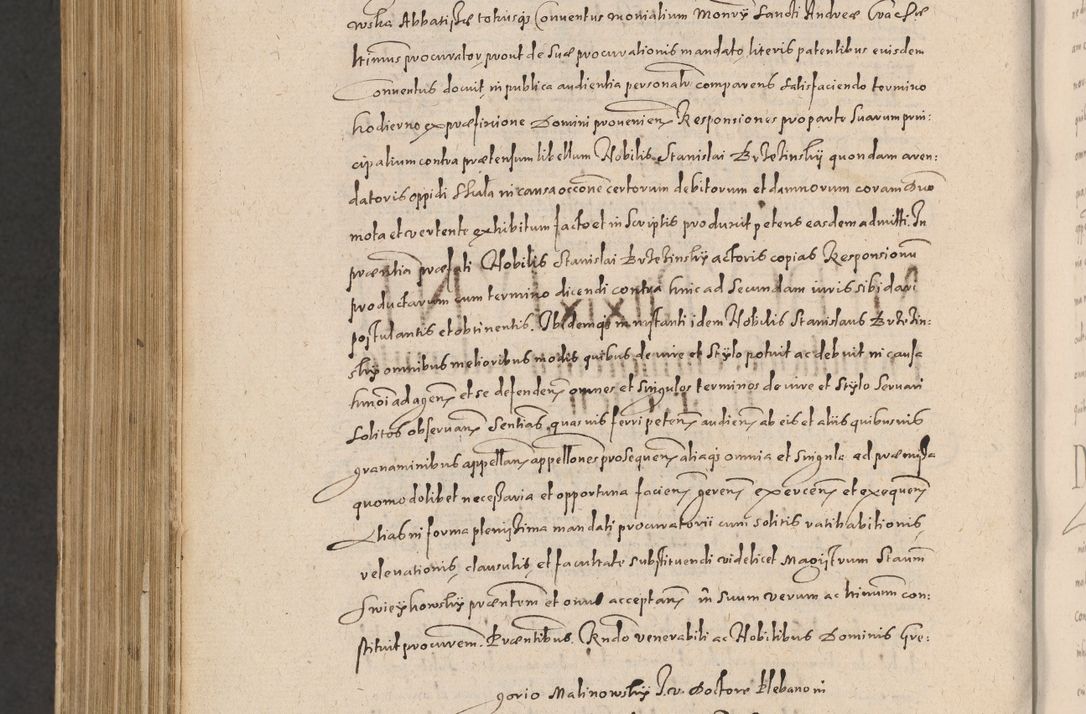 wska Abbatissæ totiusq; Conventus monialium Monrÿ Sancti Andreæ Crac &
ltimus procurator prout de suæ procurationis mandato literis patentibus eiusdem
Conventus docuit, in publica audientia personalr comparens satisfaciendo termino
hodierno ex præfixione Domini provenien Responsiones pro parte suarum prin:
cipalium contra prætensum libellum Nobilis Stanislai Brzezinskÿ quondam aren:
datoris oppidi Skała in causa occone certorum debitorum et damnorum coram Duo
mota et vertente exhibitum facto et in scriptis produxit petens easdem admitti. In
præsentia præfati Nobilis Stanislai Brzezinskÿ actoris copias Responsionū
productarum cum termino dicendi contra hinc ad secundam iuris sibi dari
postulantis et obtinentis. Ibidemq; in instanti idem Nobilis Stanislaus Brzezin:
skÿ omnibus melioribus modis quibus de iure et stÿlo potuit ac debuit in causa
hmōi ad agen et se defenden omnes et singulos terminos de iure et stÿlo servari
solitos observan Sentias quasvis ferri peten audien ab eis et aliis quibusvis
gravaminibus appellan appellones prosequen aliaq; omnia et singula ad præmissa
quomodolibet necessaria et opportuna facien geren exercen et exequen
alias in forma plenissima mandati procuratorii cum solitis ratihabitionis
relevationis clausulis, et facultate substituendi videlicet Magistrum Staum
Swieÿkowskÿ præntem et onus acceptan in suum verum ac ltimum con:
stituit procurem. Præntibus. Rndo venerabili ac Nobilibus Dominis Gre:
gorio Malinowskÿ I.v. Doctore Plebano in